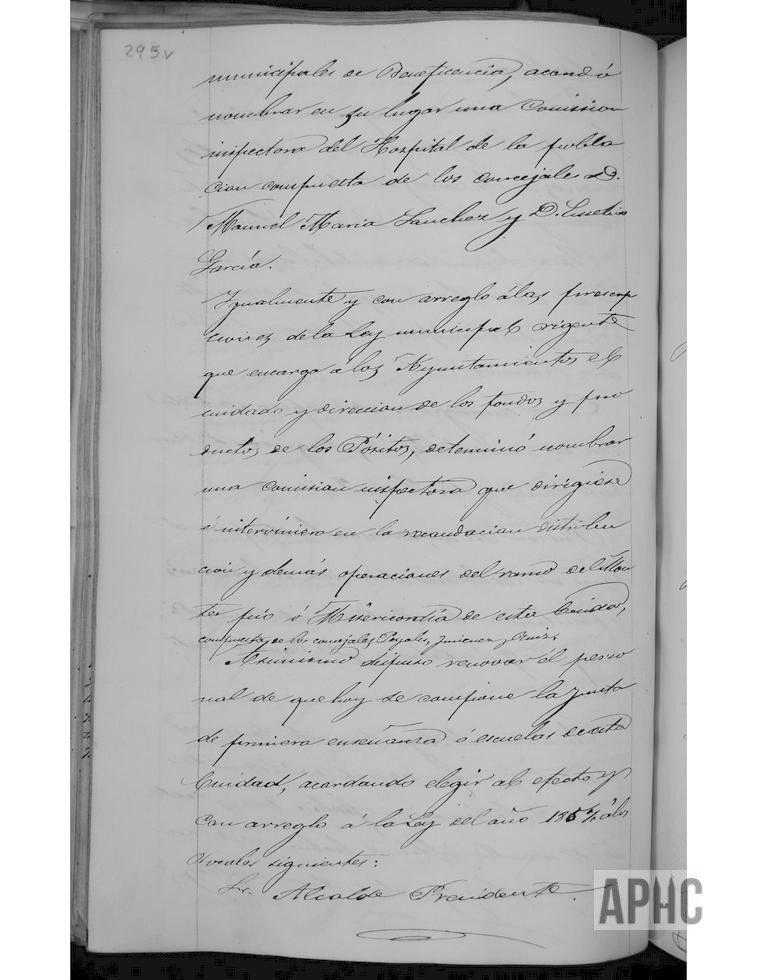 295v
municipales de Beneficencia, acordó
nombrar en su lugar una Comision
inspectora del Hospital de la pobla
cion compuesta de los concejales D.
Manuel Maria Sanchez y D.
García.
Igualmente y con arreglo á las prescrip
ciones de la Ley municipal vigente
que encarga á los Ayuntamientos el
cuidado y direccion de los fondos y pro
ductos de los Pósitos, determinó nombrar
una comision inspectora que dirigiese
é interviniera en la recaudacion distribu
cion y demás operaciones del ramo del Mon
te pio ó Misericordia de esta Ciudad,
compuesta de los concejales Jimenez y
Asimismo dispuso renovar el perso
nal de que hoy se compone la Junta
de primera enseñanza ó escuelas de esta
Ciudad, acordando elegir al efecto y
con arreglo á la Ley del año 1857 á los
vocales siguientes:
Sr. Alcalde Presidente.
APHC